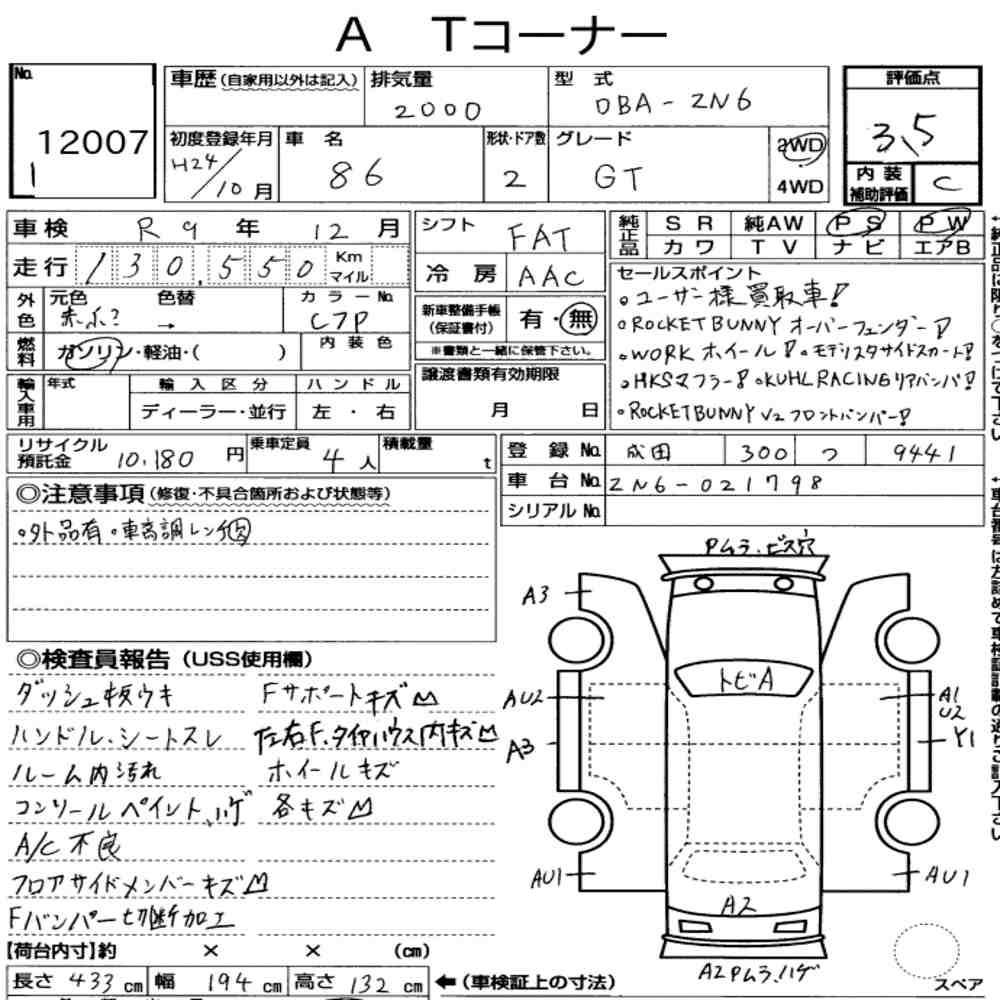 A Tコーナー
No.
12007
1
車歴(自家用以外は記入)
排気量
2000
型 式
DBA-ZN6
評価点
3.5
初度登録年月
H24/10月
車 名
86
形状・ドア数
2
グレード
GT
2WD
4WD
内装補助評価
C
車検 R9年 12月
走行 130,550 Km マイル
シフト FAT
冷房 AAC
純正品
SR 純AW PS PW
カワ TV ナビ エアB
外色
元色 色替 カラーNo.
→ C7P
燃料
ガソリン・軽油・( )
内装色
新車整備手帳
(保証書付)
有・無
※書類と一緒に保管下さい。
セールスポイント
。ユーザー様買取車!
。ROCKET BUNNY オーバーフェンダー!
。WORK ホイール!。モデリスタサイドスカート!
。HKSマフラー!。KUHL RACINGリアバンパ!
。ROCKET BUNNY V2 フロントバンパー!
輸入車用
年式
輸入区分
ディーラー・並行
ハンドル
左・右
譲渡書類有効期限
月 日
リサイクル預託金
10,180円
乗車定員
4人
積載量
t
登録No. 成田 300 つ 9441
車台No. ZN6-021798
シリアルNo.
◎注意事項(修復・不具合箇所および状態等)
。外品有。車高調レンチ
Pムラ.ビス穴
A3
トビA
AU2
A1
U2
A3
Y1
AU1
AU1
A2
A2Pムラ.ハゲ
スペア
◎検査員報告(USS使用欄)
ダッシュ板ウキ
Fサポートキズ凹
ハンドル.シートスレ
左右F.タイヤハウス内キズ凹
ルーム内汚れ
ホイールキズ
コンソールペイント.ハゲ
各キズ凹
A/C 不良
フロアサイドメンバーキズ凹
Fバンパー切断加工
【荷台内寸】約 × × (cm)
長さ 433 cm 幅 194 cm 高さ 132 cm
←(車検証上の寸法)